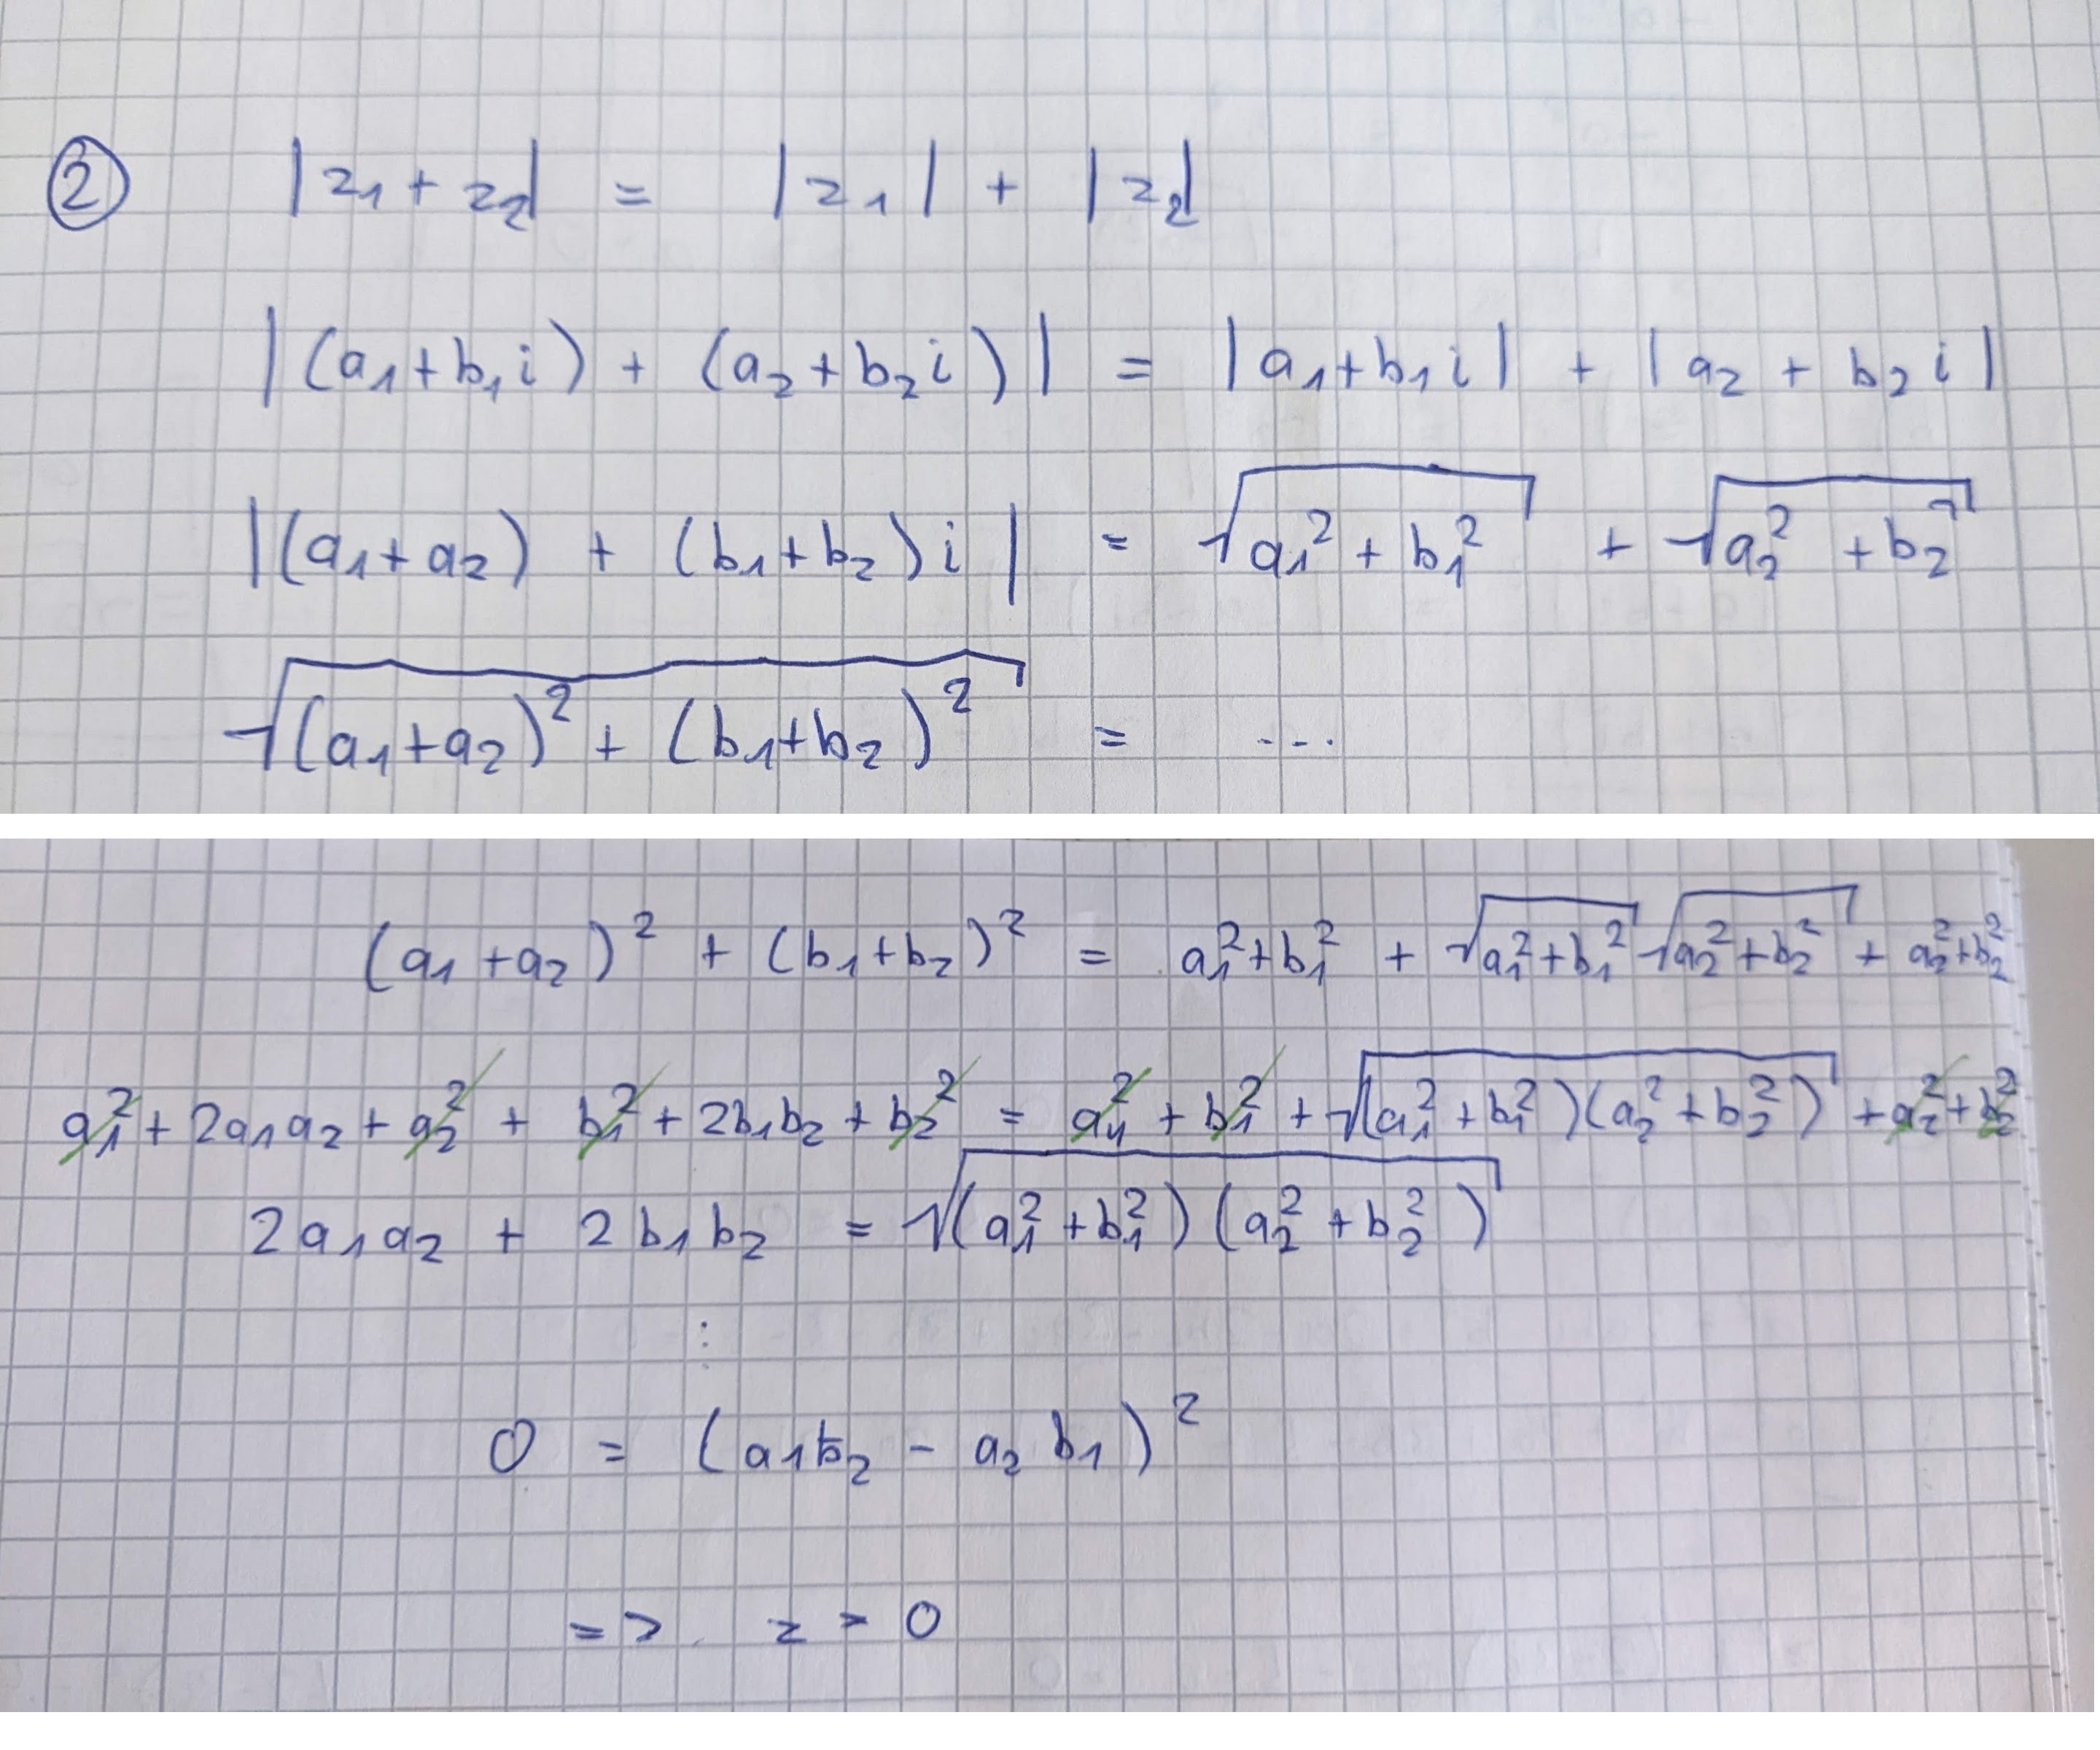 ② |z₁ + z₂| = |z₁| + |z₂|
|(a₁+b₁i) + (a₂+b₂i)| = |a₁+b₁i| + |a₂ + b₂i|
|(a₁+a₂) + (b₁+b₂)i| = √(a₁² + b₁²) + √(a₂² + b₂²)
√((a₁+a₂)² + (b₁+b₂)²) = ...
(a₁+a₂)² + (b₁+b₂)² = a₁²+b₁² + √(a₁²+b₁²) √(a₂²+b₂²) + a₂²+b₂²
a₁² + 2a₁a₂ + a₂² + b₁² + 2b₁b₂ + b₂² = a₁² + b₁² + √((a₁²+b₁²)(a₂²+b₂²)) + a₂² + b₂²
2a₁a₂ + 2b₁b₂ = √((a₁²+b₁²)(a₂²+b₂²))
⋮
0 = (a₁b₂ - a₂b₁)²
=> z > 0